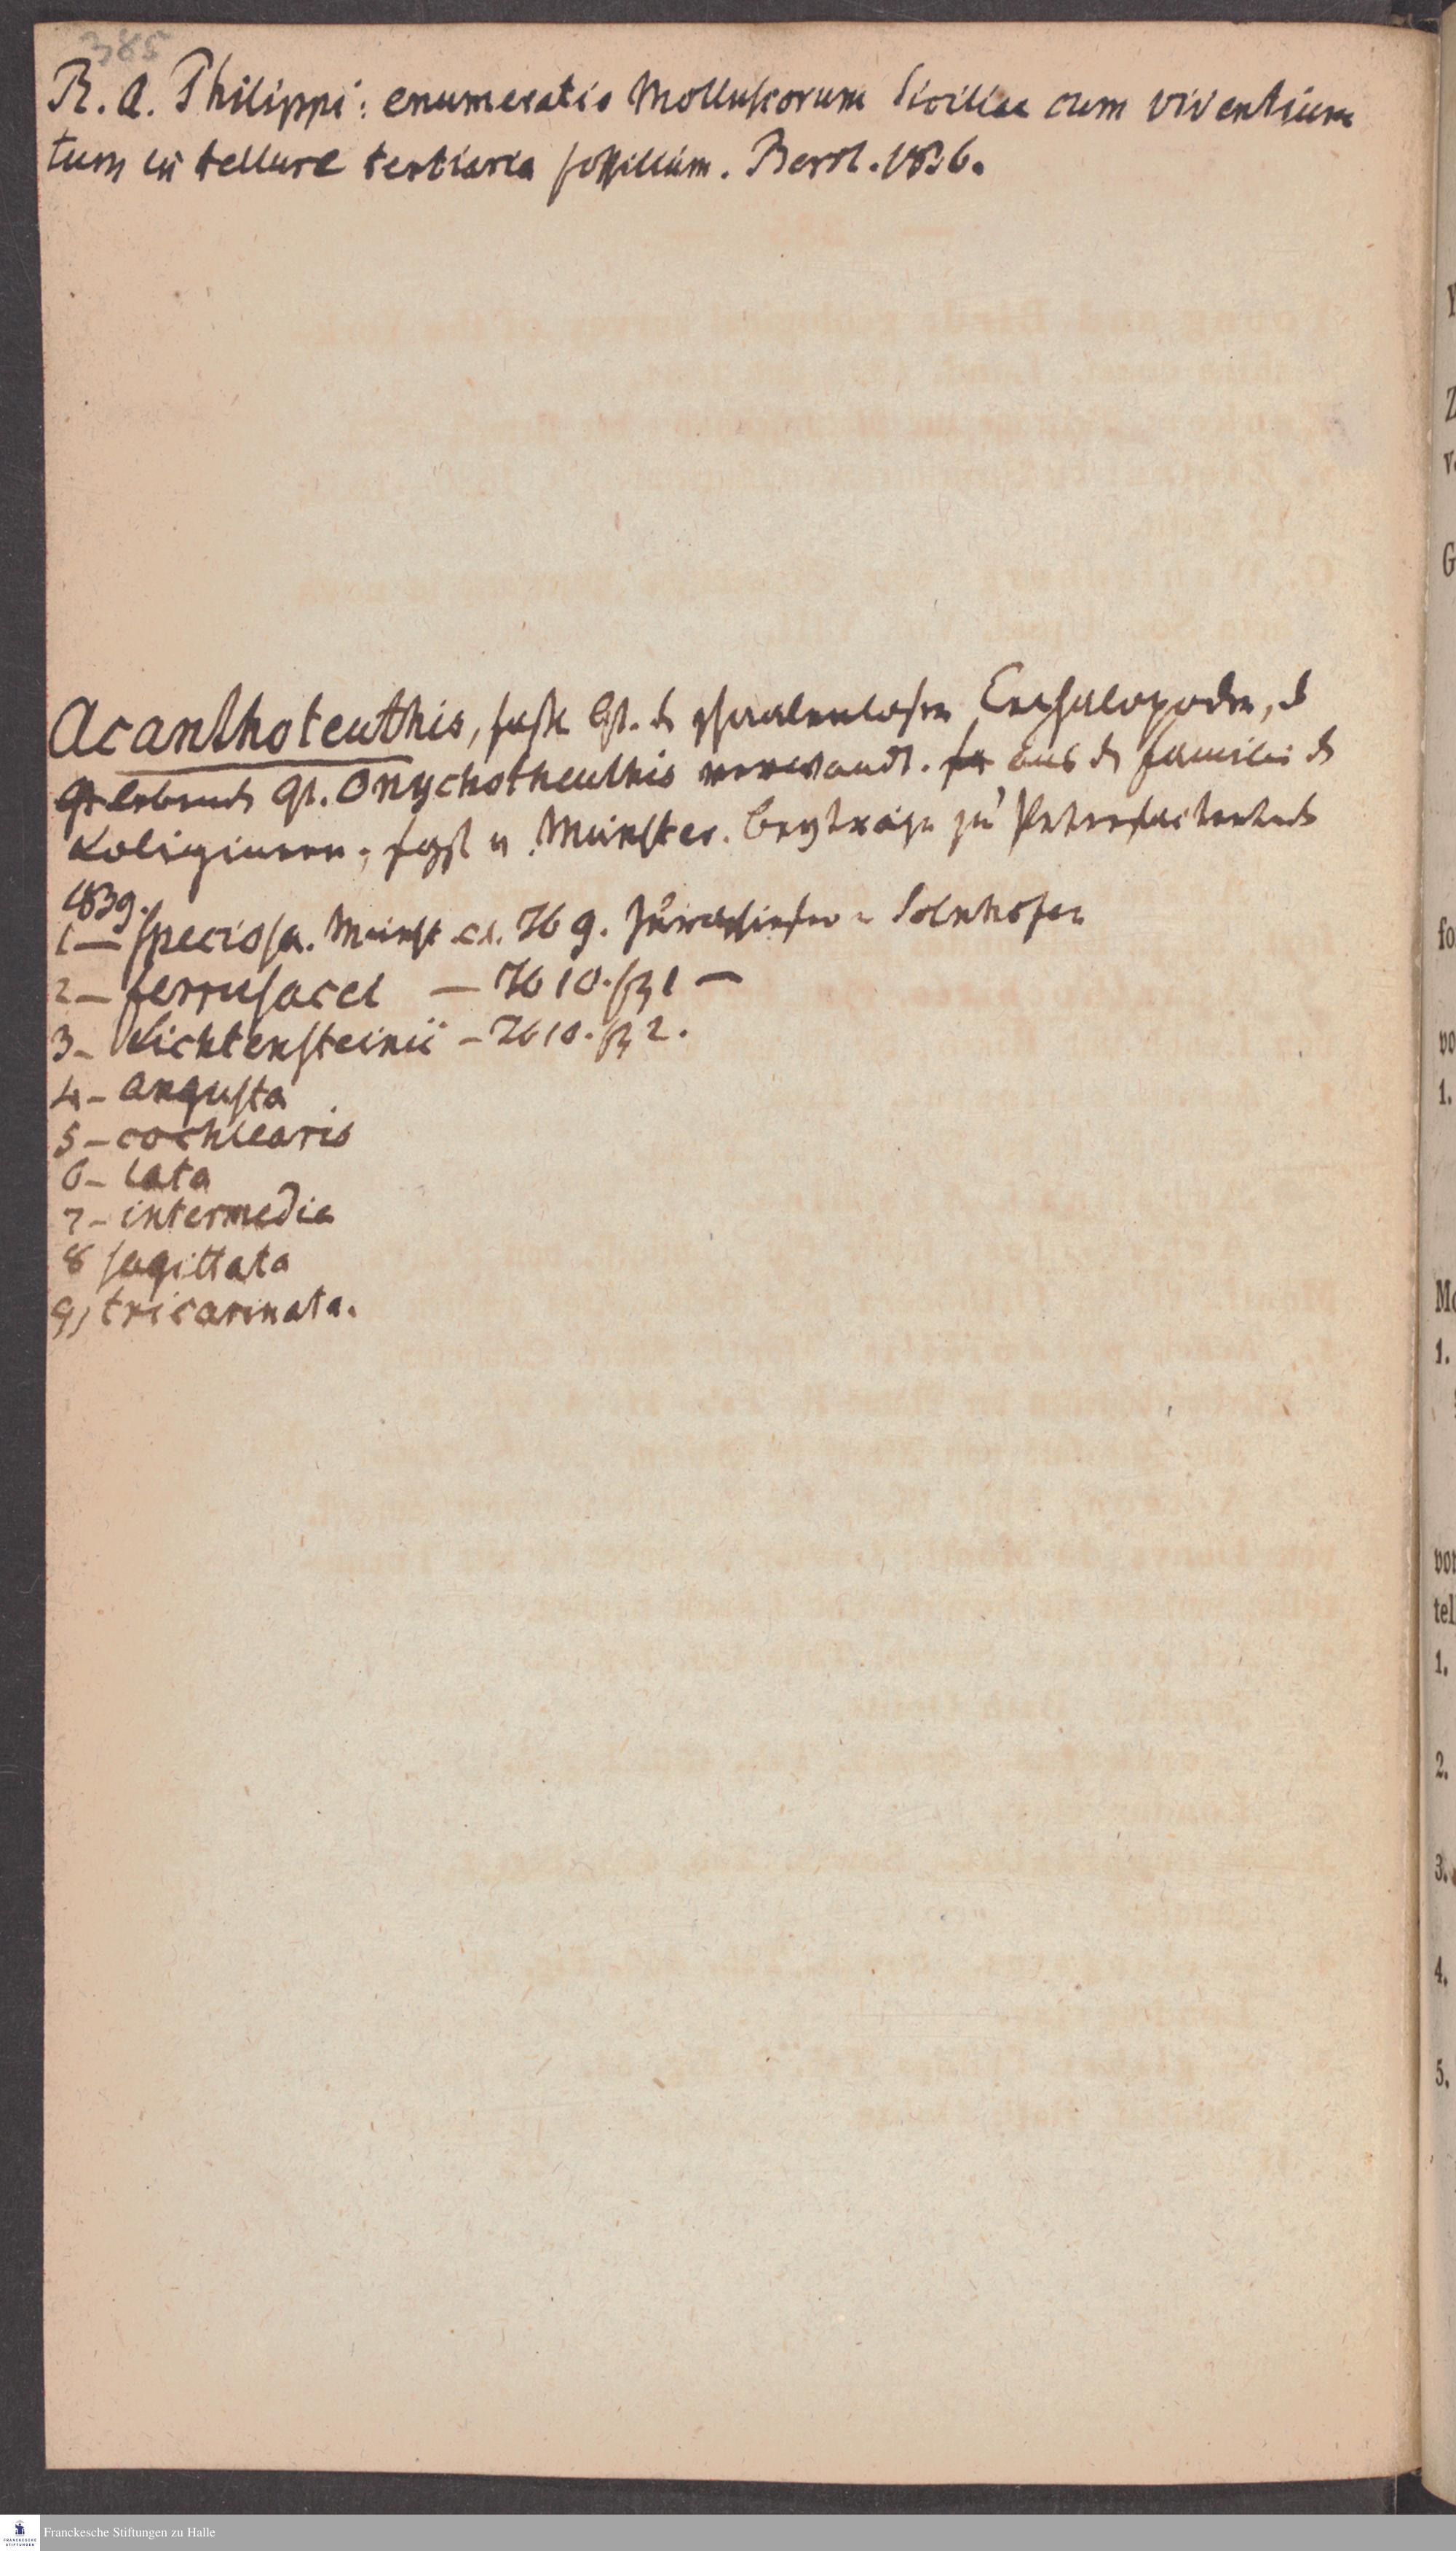 385
R. A. Philippi: enumeratio Molluscorum Siciliae cum viventium
tum in tellure tertiaria fossilium. Berol. 1836.
Acanthoteuthis, foss. Gt. d. schaalenlosen Cephalopoden, d
lebend. Gt. Onychotheuthis verwandt. aus d. Familie d
Loligineen; s. Münster. Beyträge zu Petrefactenkunde
1839.
1 — speciosa. Münst. 9. Solenhofen
2 — ferrusacei — 10. 1 —
3 — Lichtensteinii — 10. 2.
4 — angusta
5 — cochlearis
6 — lata
7 — intermedia
8 sagittata
9, tricarinata.
Z
G
fo
vo
1.
Mo
1.
vor
tel
1.
2.
3.
4.
5.
Franckesche Stiftungen zu Halle